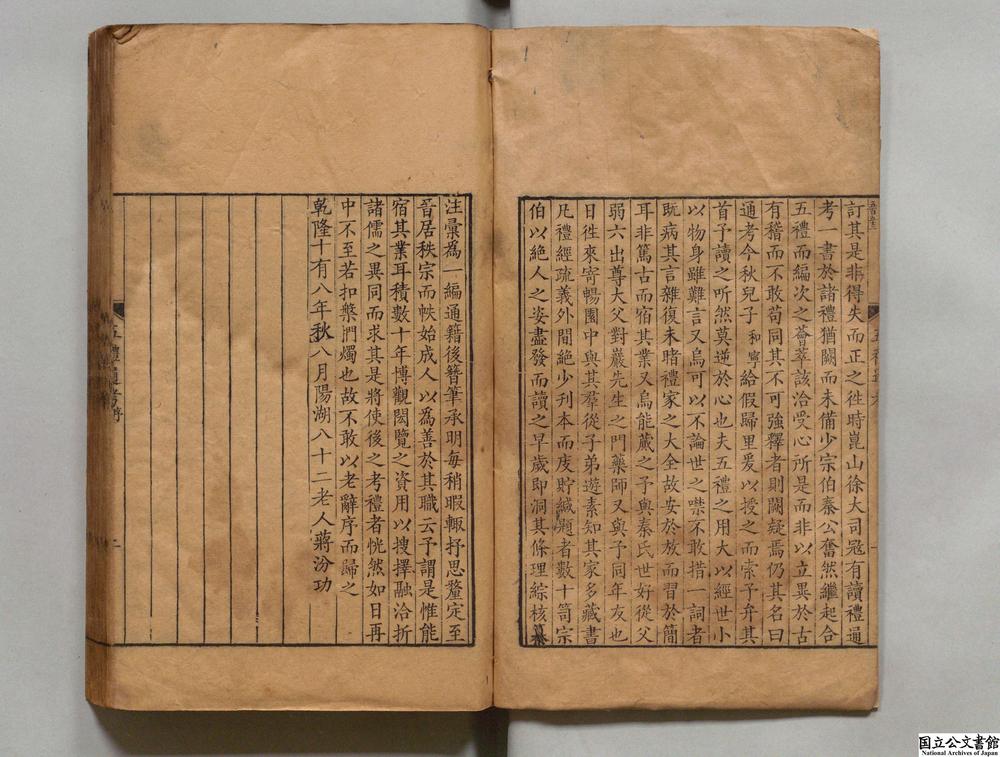 訂其是非得失而正之徃時崑山徐大司冦有讀禮通
考一書於諸禮猶闕而未備少宗伯秦公奮然繼起合
五禮而編次之薈萃該洽受心所是而非以立異於古
有稽而不敢苟同其不可強釋者則闕疑焉仍其名曰
通考今秋兒子和寧給假歸里爰以授之而索予弁其
首予讀之所然莫逆於心也夫五禮之用大以經世小
以物身雖難言又烏可以不論世之噤不敢措一詞者
旣病其言雜復未睹禮家之大全故安於放而習於簡
耳非篤古而宿其業又烏能蕆之予與秦氏世好從父
弱六出尊大父對巖先生之門藥師又與予同年友也
日徃來寄暢園中與其羣從子弟遊素知其家多藏書
凡禮經疏義外間絶少刋本而庋貯緘題者數十笥宗
伯以絶人之姿盡發而讀之早歲即洞其條理綜核纂
注彚為一編通籍後簪筆承明每稍暇輙抒思釐定至
晉居秩宗而帙始成人以為善於其職云予謂是惟能
宿其業耳積數十年博觀閎覽之資用以搜擇融洽折
諸儒之異同而求其是將使後之考禮者恍然如日再
中不至若扣槃捫燭也故不敢以老辭序而歸之
乾隆十有八年秋八月陽湖八十二老人蔣汾功
五禮通考序
二
国立公文書館
National Archives of Japan